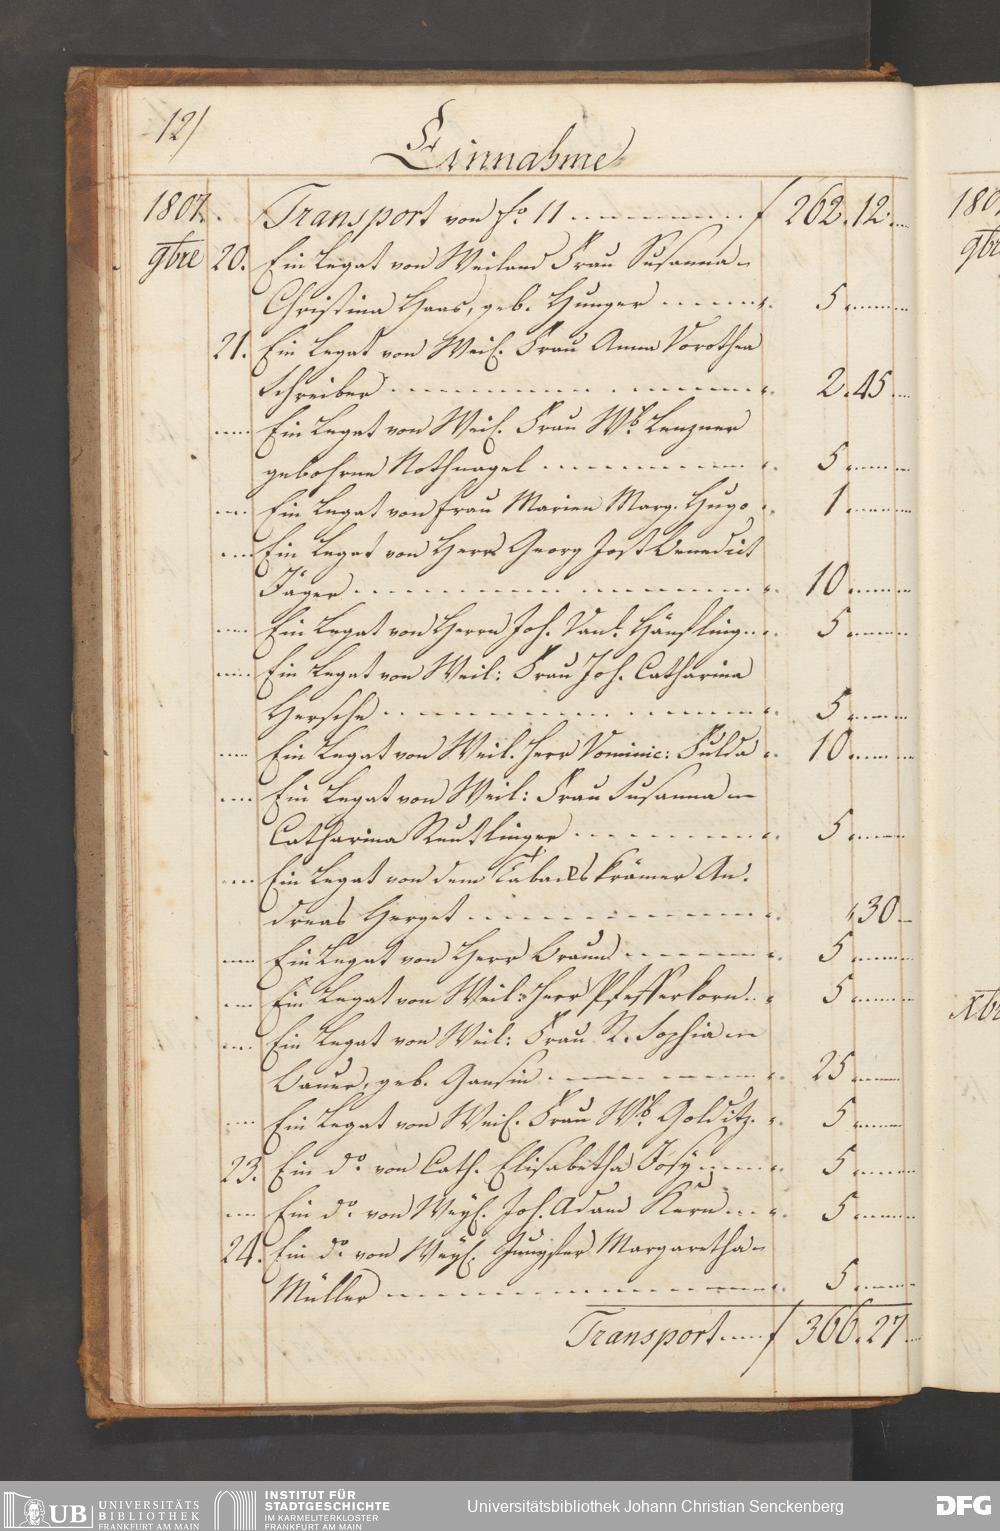 12/
Einnahme
1807. Transport von fo. 11 f 262. 12.
9bre 20. Ein Legat von Weiland Frau Susanna
Christina Haas, geb. Hunger 5
21. Ein Legat von Weil. Frau Anna Dorothea
Schreiber 2. 45
Ein Legat von Weil. Frau Wb. Lenzner
gebohrne Rothnagel 5
Ein Legat von Frau Marien Marg. Hugo 1
Ein Legat von Herrn Georg Jost Benedict
Jäger 10
Ein Legat von Herrn Joh. Dan. Hänfling 5
Ein Legat von Weil: Frau Joh. Catharina
Hersche 5
Ein Legat von Weil. Herr Dominic: Fulda 10
Ein Legat von Weil: Frau Susanna
Catharina Reutlinger 5
Ein Legat von dem Tabackskrämer An-
dreas Herget 30
Ein Legat von Herr Braun 5
Ein Legat von Weil: Herr Pfefferkorn 5
Ein Legat von Weil: Frau R. Sophia
Bauer, geb. Gansin 25
Ein Legat von Weil. Frau Wb. Golditz 5
23. Ein do. von Cath. Elisabetha Josÿ 5
Ein do. von Weyl. Joh. Adam Kern 5
24. Ein do. von Weyl. Jungfer Margaretha
Müller 5
Transport f 366. 27
180
9br
Xbr
UB UNIVERSITÄTS
BIBLIOTHEK
FRANKFURT AM MAIN
INSTITUT FÜR
STADTGESCHICHTE
IM KARMELITERKLOSTER
FRANKFURT AM MAIN
Universitätsbibliothek Johann Christian Senckenberg
DFG